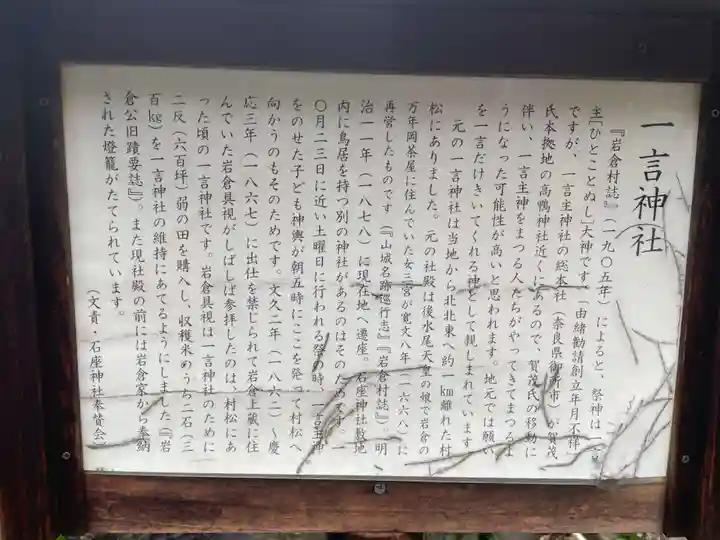 一言神社
『岩倉村誌』(一九〇五年)によると、祭神は一言
主[ひとことぬし]大神です。「由緒勧請創立年月不祥」
ですが、一言主神社の総本社(奈良県御所市)が賀茂
氏本拠地の高鴨神社近くにあるので、賀茂氏の移動に
伴い、一言主神をまつる人たちがやってきてまつるよ
うになった可能性が高いと思われます。地元では願い
を一言だけきいてくれる神として親しまれています。
元の一言神社は当地から北北東へ約一km離れた村
松にありました。元の社殿は後水尾天皇の娘で岩倉の
万年岡茶屋に住んでいた女三宮が寛文八年(一六六八)に
再営したものです(『山城名跡巡行志』『岩倉村誌』)。明
治一一年(一八七八)に現在地へ遷座。石座神社敷地
内に鳥居を持つ別の神社があるのはそのためです。一
〇月二三日に近い土曜日に行われる祭の時、一言主神
をのせた子ども神輿が朝五時にここを発って村松へ
向かうのもそのためです。文久二年(一八六二)〜慶
応三年(一八六七)に出仕を禁じられて岩倉上蔵に住
んでいた岩倉具視がしばしば参拝したのは、村松にあ
った頃の一言神社です。岩倉具視は一言神社のために
二反(六百坪)弱の田を購入し、収穫米のうち二石(三
百kg)を一言神社の維持にあてるようにしました(『岩
倉公旧蹟要誌』)。また現社殿の前には岩倉家から奉納
された燈籠がたてられています。
(文責・石座神社奉賛会)